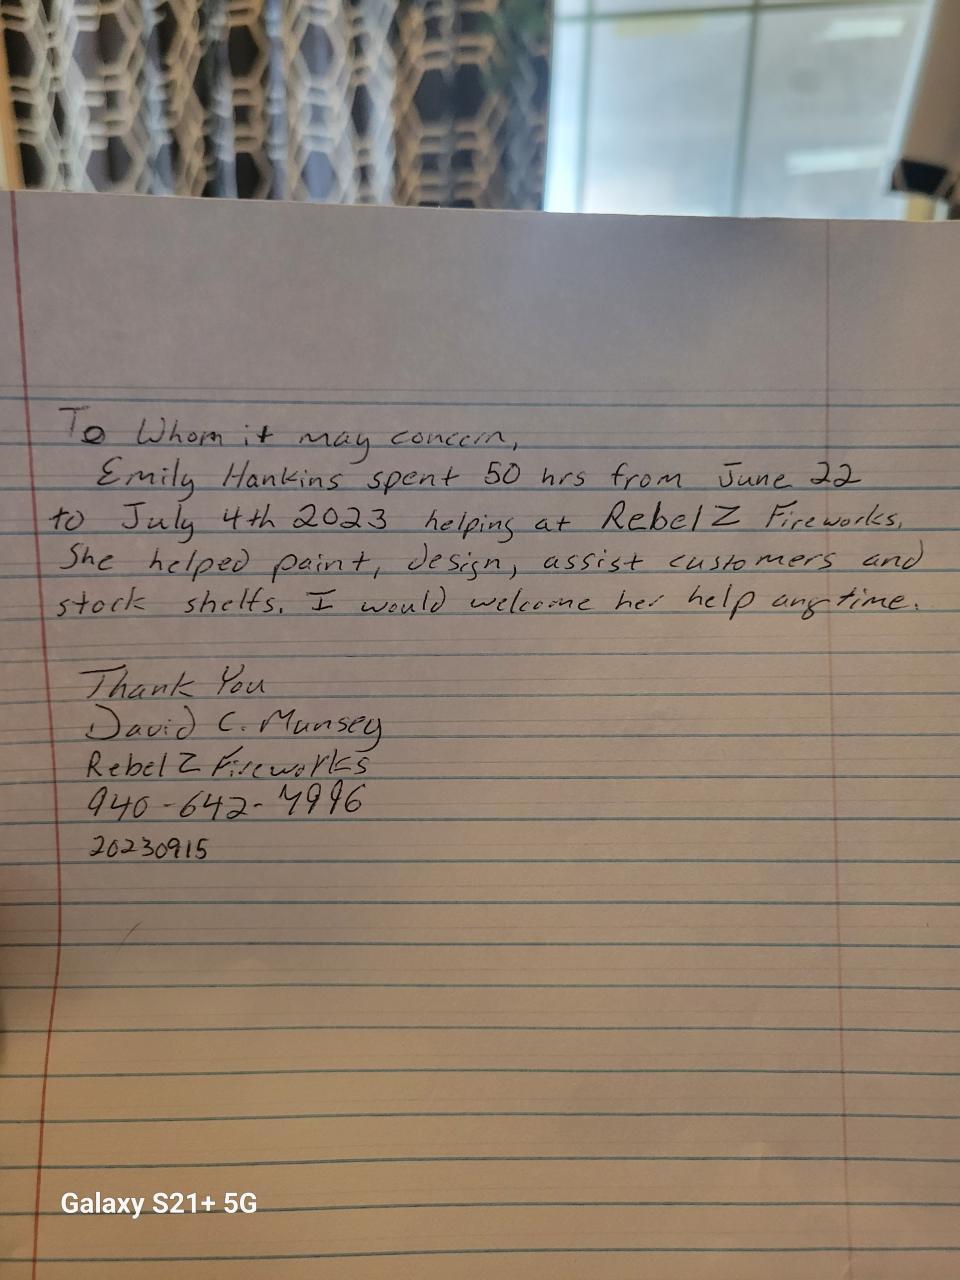 To Whom it may concern,
Emily Hankins spent 50 hrs from June 22
to July 4th 2023 helping at Rebel Z Fireworks.
She helped paint, design, assist customers and
stock shelfs. I would welcome her help anytime.
Thank You
David C. Munsey
Rebel Z Fireworks
940-642-7996
20230915
Galaxy S21+ 5G